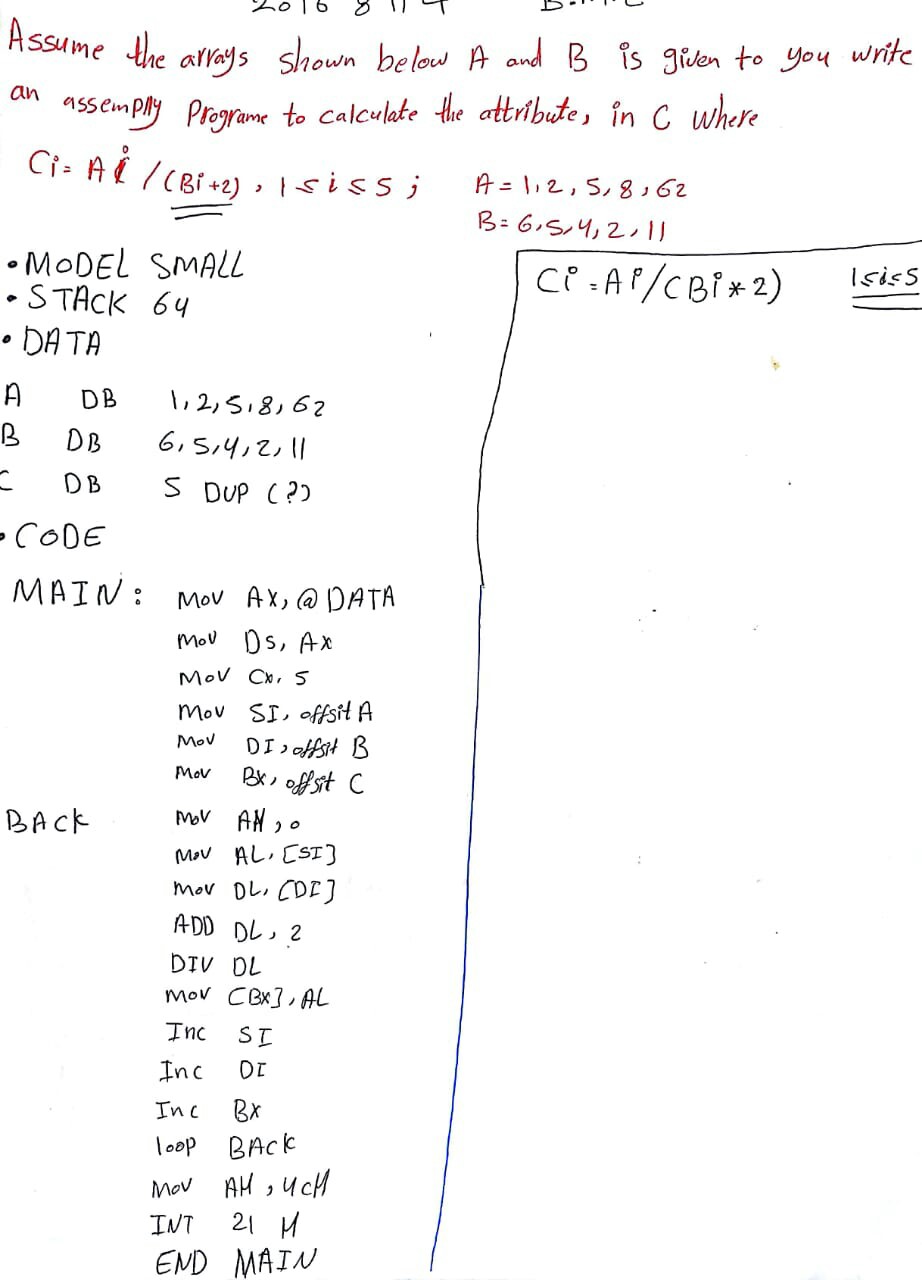 Assume the arrays shown below A and B is given to you write
an assemplly Programe to calculate the attribute, in C where
Ci = Ai / (Bi +2) , 1 ≤ i ≤ 5 ;
A = 1, 2, 5, 8, 62
B = 6, 5, 4, 2, 11
• MODEL SMALL
• STACK 64
• DATA
A DB 1, 2, 5, 8, 62
B DB 6, 5, 4, 2, 11
C DB 5 DUP (?)
• CODE
MAIN : Mov AX, @ DATA
Mov Ds, Ax
Mov Cx, 5
Mov SI, offsit A
Mov DI, offsit B
Mov Bx, offsit C
BACK Mov AH, 0
Mov AL, [SI]
Mov DL, [DI]
ADD DL, 2
DIV DL
Mov [BX], AL
Inc SI
Inc DI
Inc BX
loop BACK
Mov AH, 4cH
INT 21 H
END MAIN
Ci = Ai / (Bi * 2) 1 ≤ i ≤ 5